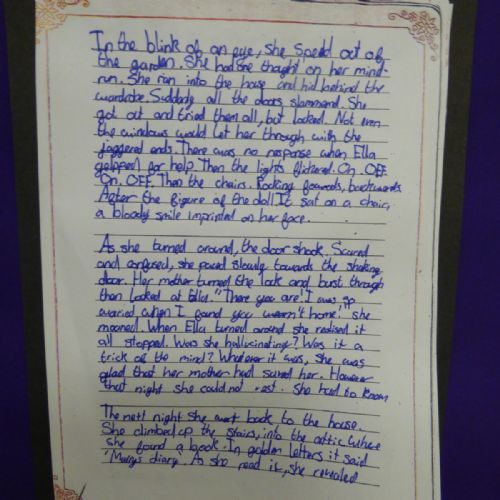 In the blink of an eye, she speed out of
the garden. She had one thaght on her mind-
run. She ran into the house and hid behind the
wardrobe. Suddenly all the doors slammend. She
got out and tried them all, but locked. Not even
the windows would let her through with the
jaggered ends. There was no response when Ella
yelpped for help. Then the lights flickered. On. OFF.
On. OFF. Then the chairs. Rocking forwards, backwards.
After the figure of the doll. It sat on a chair,
a bloody smile imprinted on her face.
As she turned around, the door shook. Scared
and confused, she paced slowly towards the shaking
door. Her mother turned the lock and bust through
than looked at Ella. "There you are! I was so
waried when I found you weren't home!" she
moaned. When Ella turned around she realised it
all stopped. Was she hallucinating? Was it a
trick of the mind? Whatever it was, she was
glad that her mother had saved her. However
that night she could not rest. She had to know
The next night she went back to the house.
She climbed up the stairs, into the attic where
she found a book. In golden letters it said
"Marys diary. As she read it, she revealed